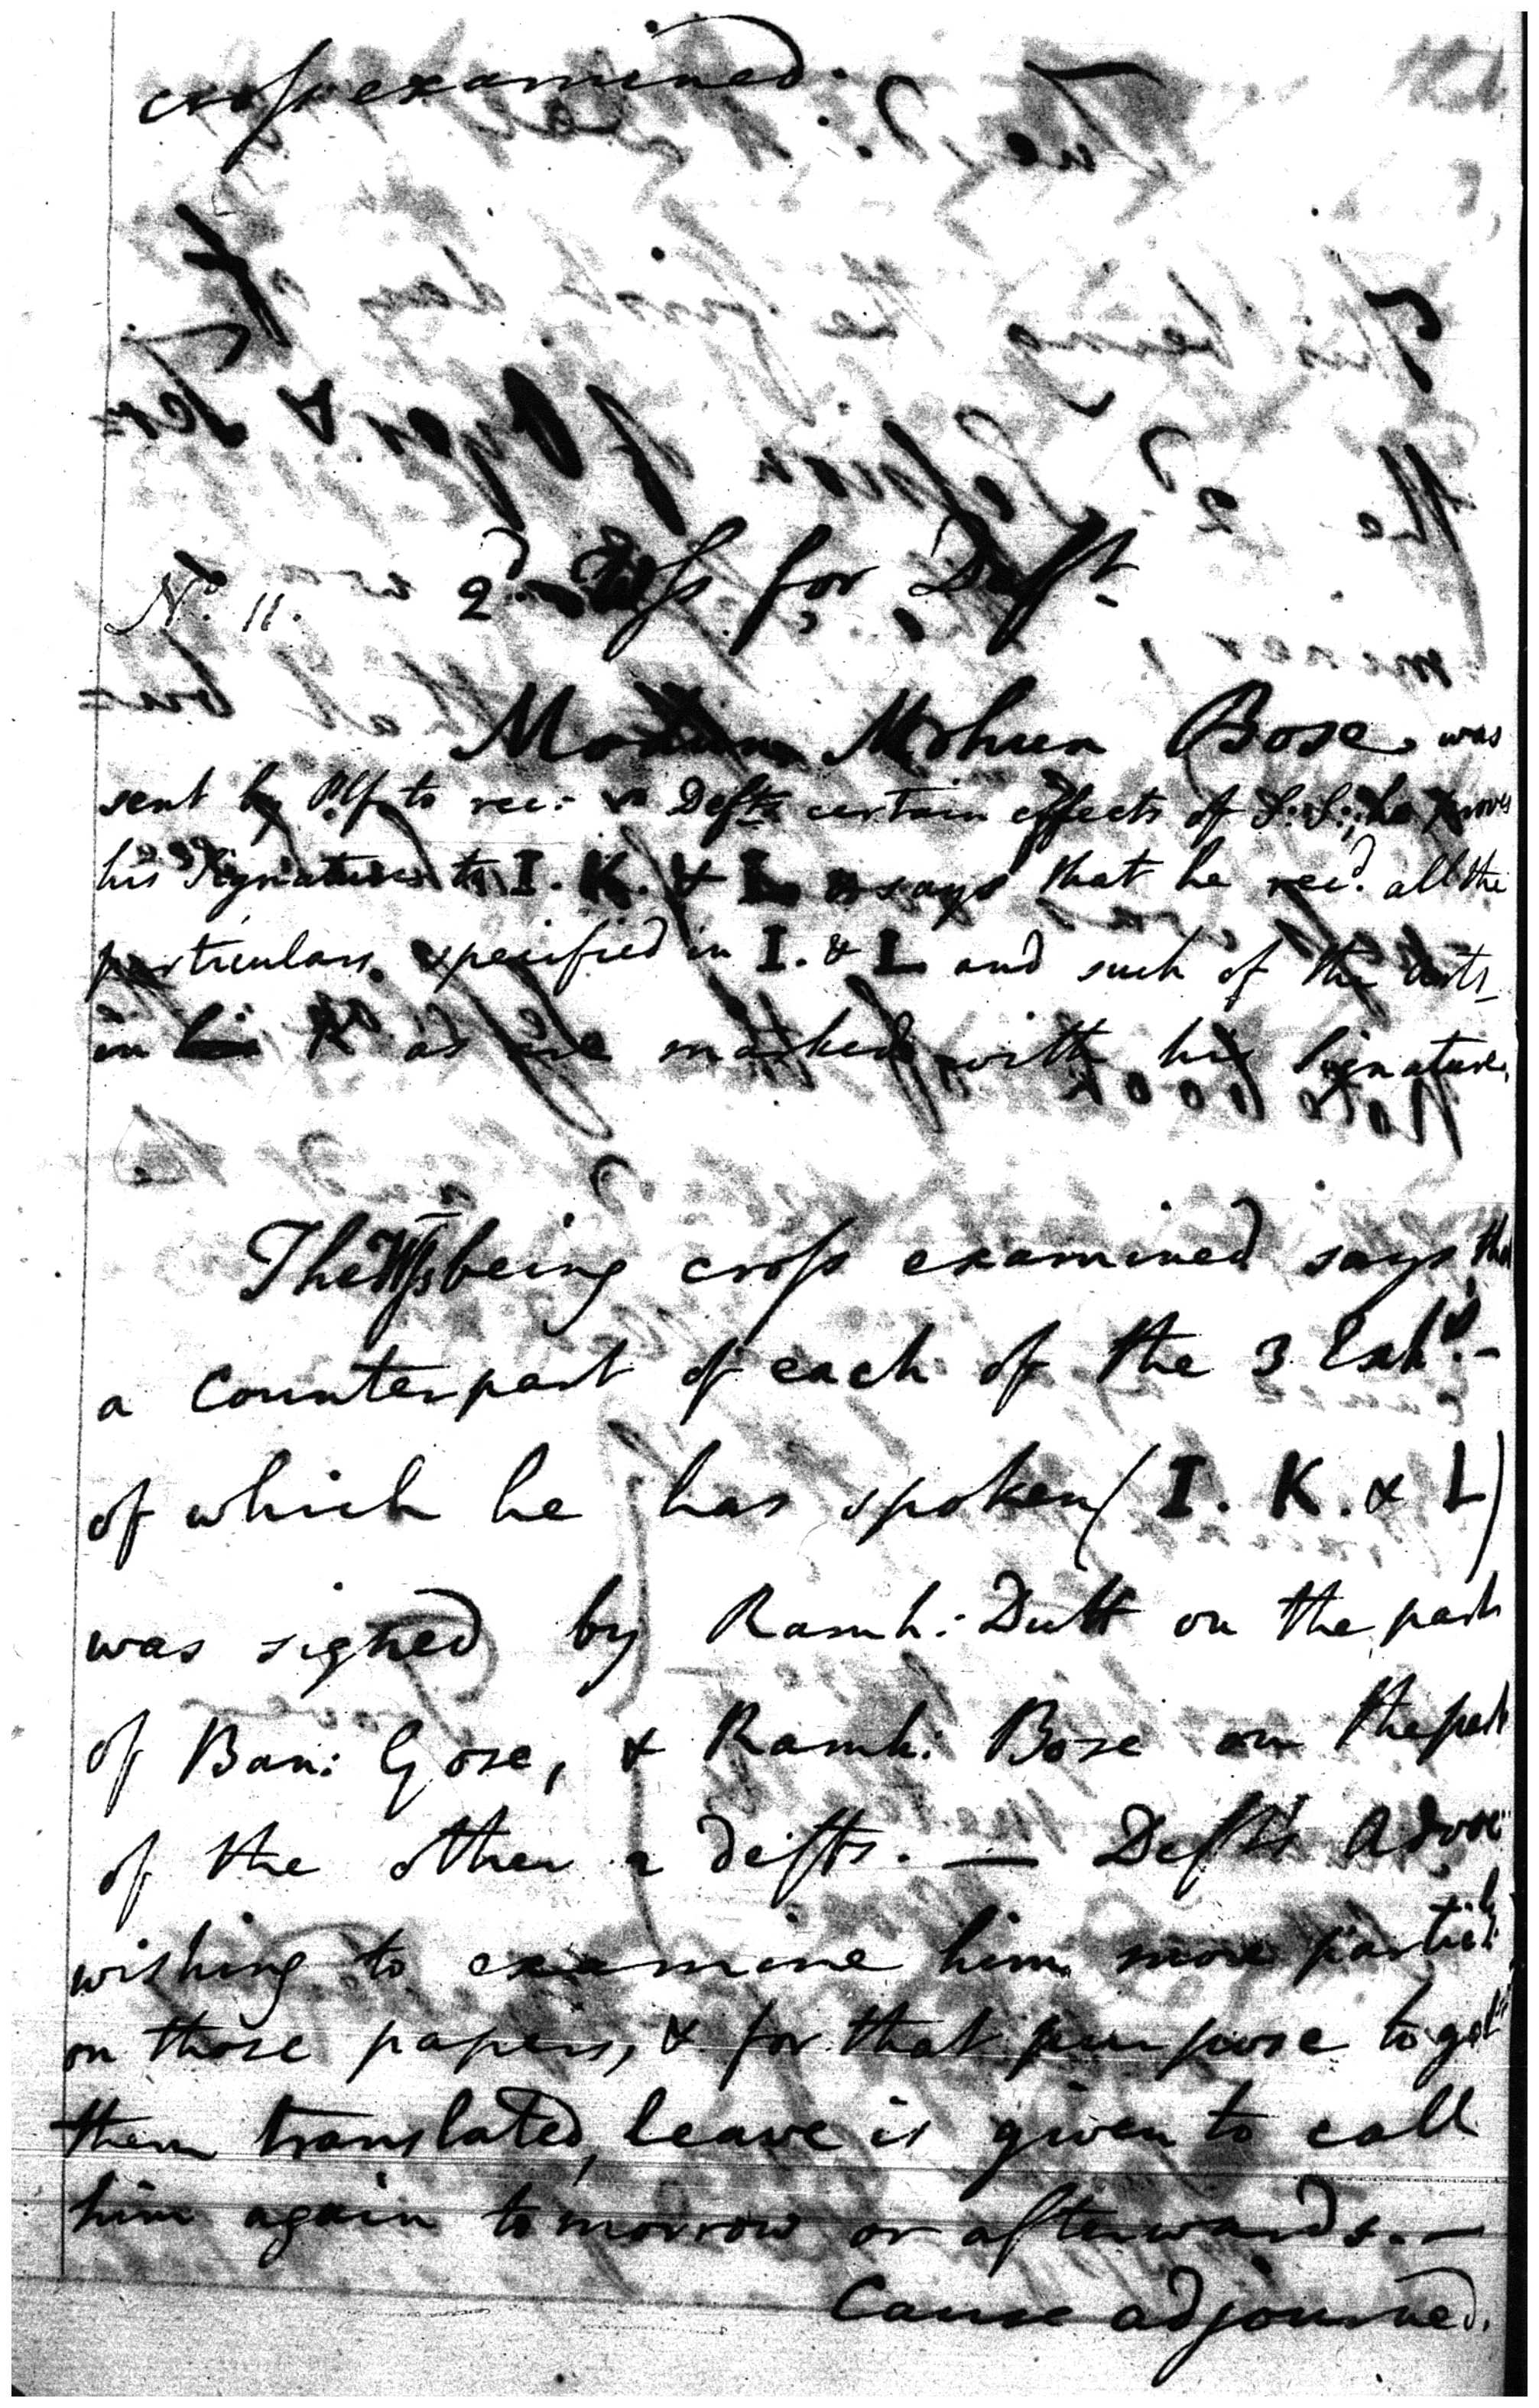 cross examined.
No. 11. 2d. Wss for Deft.
Modun Mohun Bose was
sent by Plf to rec: Defts certain effects of S: S:; he proves
his Signatures to I. K. & L says that he recd. all the
particulars specified in I. & L and such of the
in K as are marked with his Signature.
The Wss being cross examined says that
a counterpart of each of the 3 Exhts. -
of which he has spoken (I. K. & L)
was signed by Ramh: Dutt on the part
of Ban: Gose, & Ramh: Bose on the part
of the other 2 defts. — Defts Advoc:
wishing to examine him more particly
on those papers, & for that purpose to get
them translated, leave is given to call
him again tomorrow or afterwards. —
Cause adjourned.